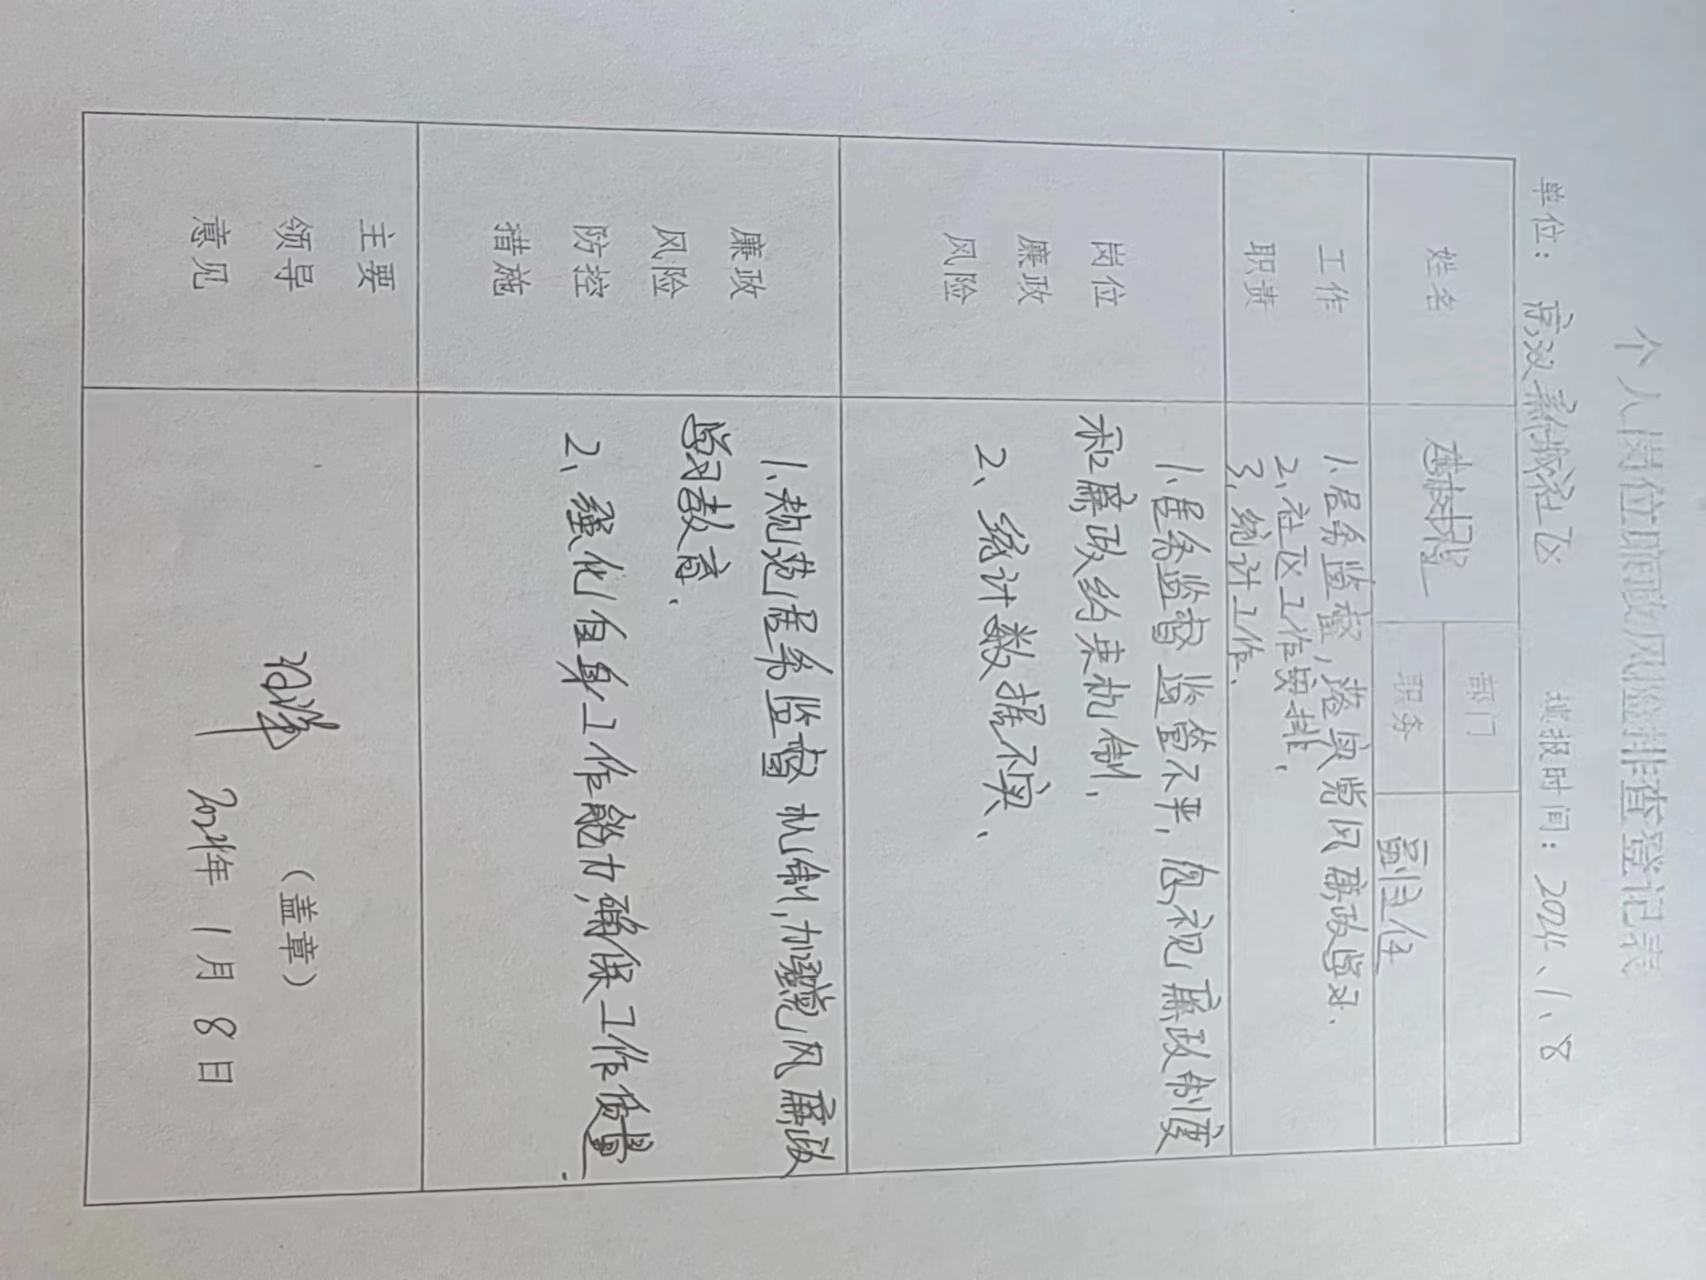 个人岗位廉政风险排查登记表
单位：京汉新城社区 填报时间：2024、1、8
姓名 部门
职务 副主任
工作
职责
1、居务监督，落实党风廉政学习、
2、社区工作安排、
3、统计工作、
岗位
廉政
风险
1、居务监督监管不严，忽视廉政制度
和廉政约束机制、
2、统计数据不实、
廉政
风险
防控
措施
1、规范居务监督机制，加强党风廉政
学习教育、
2、强化自身工作能力，确保工作质量、
主要
领导
意见
（盖章）
2024年1月8日